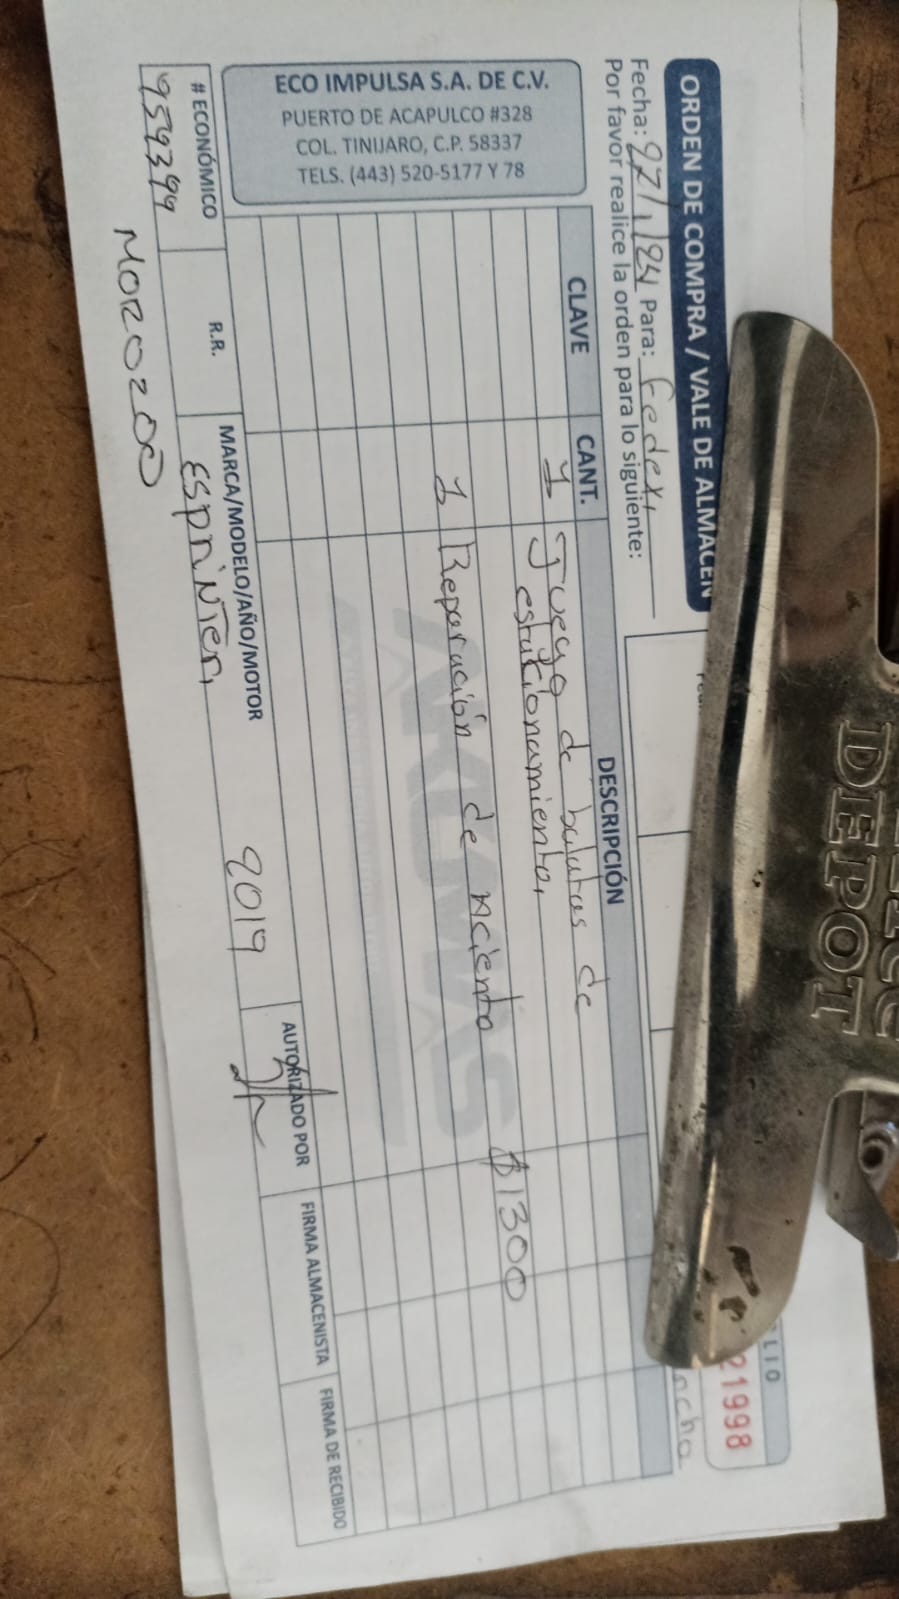 ORDEN DE COMPRA / VALE DE ALMACEN
LIO
21998
Fecha: 27/1/24 Para: Fedex
ncho
Por favor realice la orden para lo siguiente:
ECO IMPULSA S.A. DE C.V.
PUERTO DE ACAPULCO #328
COL. TINIJARO, C.P. 58337
TELS. (443) 520-5177 Y 78
CLAVE CANT. DESCRIPCIÓN
1 Juego de balatas de
estacionamiento,
$1300
1 Reparación de aciento
AKUMAS
# ECONÓMICO R.R. MARCA/MODELO/AÑO/MOTOR AUTORIZADO POR FIRMA ALMACENISTA FIRMA DE RECIBIDO
959394 ESPRiNTER 2019
MOROZOO
DEPOT